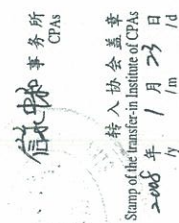 事务所
CPAs
转入协会盖章
Stamp of the transfer-in Institute of CPAs
2008年1月23日
/y /m /d